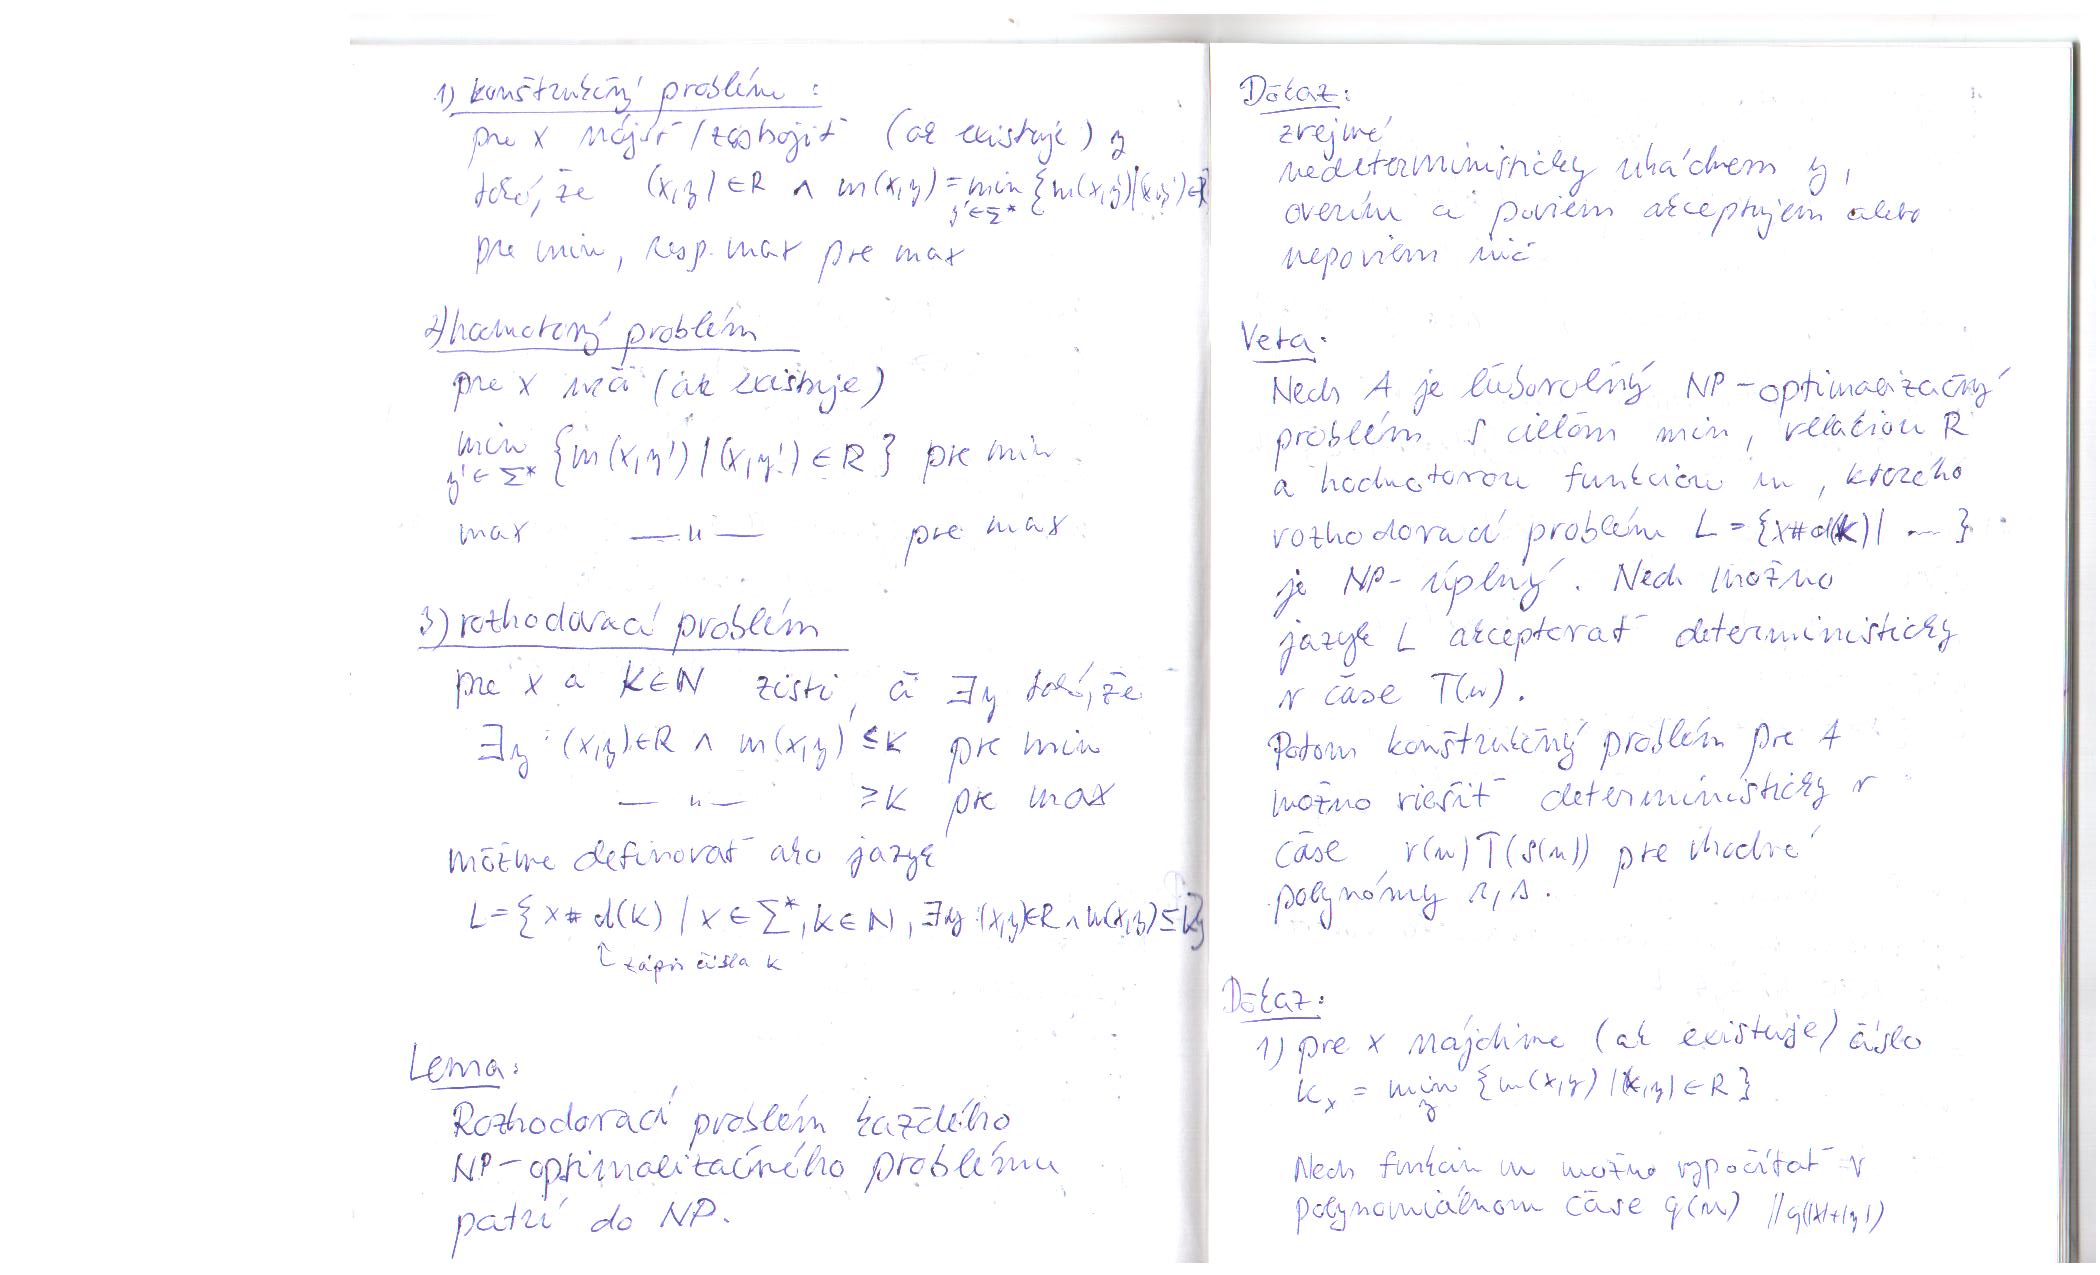 1) konštrukčný problém :
pre x nájsť / zostrojiť (ak existuje) y
také, že (x,y) ∈ R ∧ m(x,y) = min {m(x,y')|(x,y') ∈ R}
y' ∈ Σ*
pre min, resp. max pre max
2) hodnotový problém
pre x urči (ak existuje)
min {m(x,y') | (x,y') ∈ R} pre min
y' ∈ Σ*
max —"— pre max
3) rozhodovací problém
pre x a k∈N zisti, či ∃y také, že
∃y : (x,y)∈R ∧ m(x,y) ≤k pre min
—"— ≥k pre max
môžme definovať ako jazyk
L={x# d(k) / x ∈ Σ*, k ∈ N, ∃y :(x,y)∈R ∧ m(x,y) ≤ k}
zápis čísla k
Lema:
Rozhodovací problém každého
NP-optimalizačného problému
patrí do NP.
Dôkaz:
zrejmé
nedeterministicky uhádnem y,
overím a poviem akceptujem alebo
nepoviem nič
Veta:
Nech A je ľubovolný NP-optimalizačný
problém s cieľom min, reláciou R
a hodnotovou funkciou m, ktorého
rozhodovací problém L = {x#d(k)| --- }
je NP-úplný. Nech možno
jazyk L akceptovať deterministicky
v čase T(n).
Potom konštrukčný problém pre A
možno riešiť deterministicky v
čase r(n)T(s(n)) pre vhodné
polynómy r, s.
Dôkaz:
1) pre x nájdime (ak existuje) číslo
k_x = min {m(x,y) |(x,y) ∈ R}
y
Nech funkciu m možno vypočítať v
polynomiálnom čase q(n) //q(|x|+|y|)